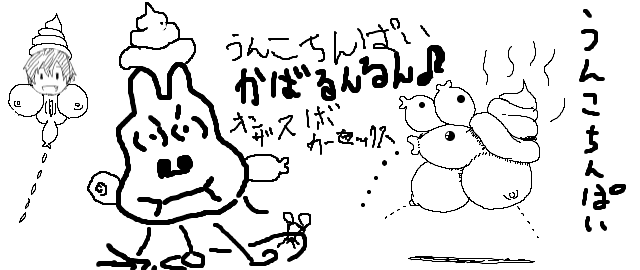 うんこちんぱい
かばるんるん♪
オンザスパ
カーセックス
うんこちんぱい